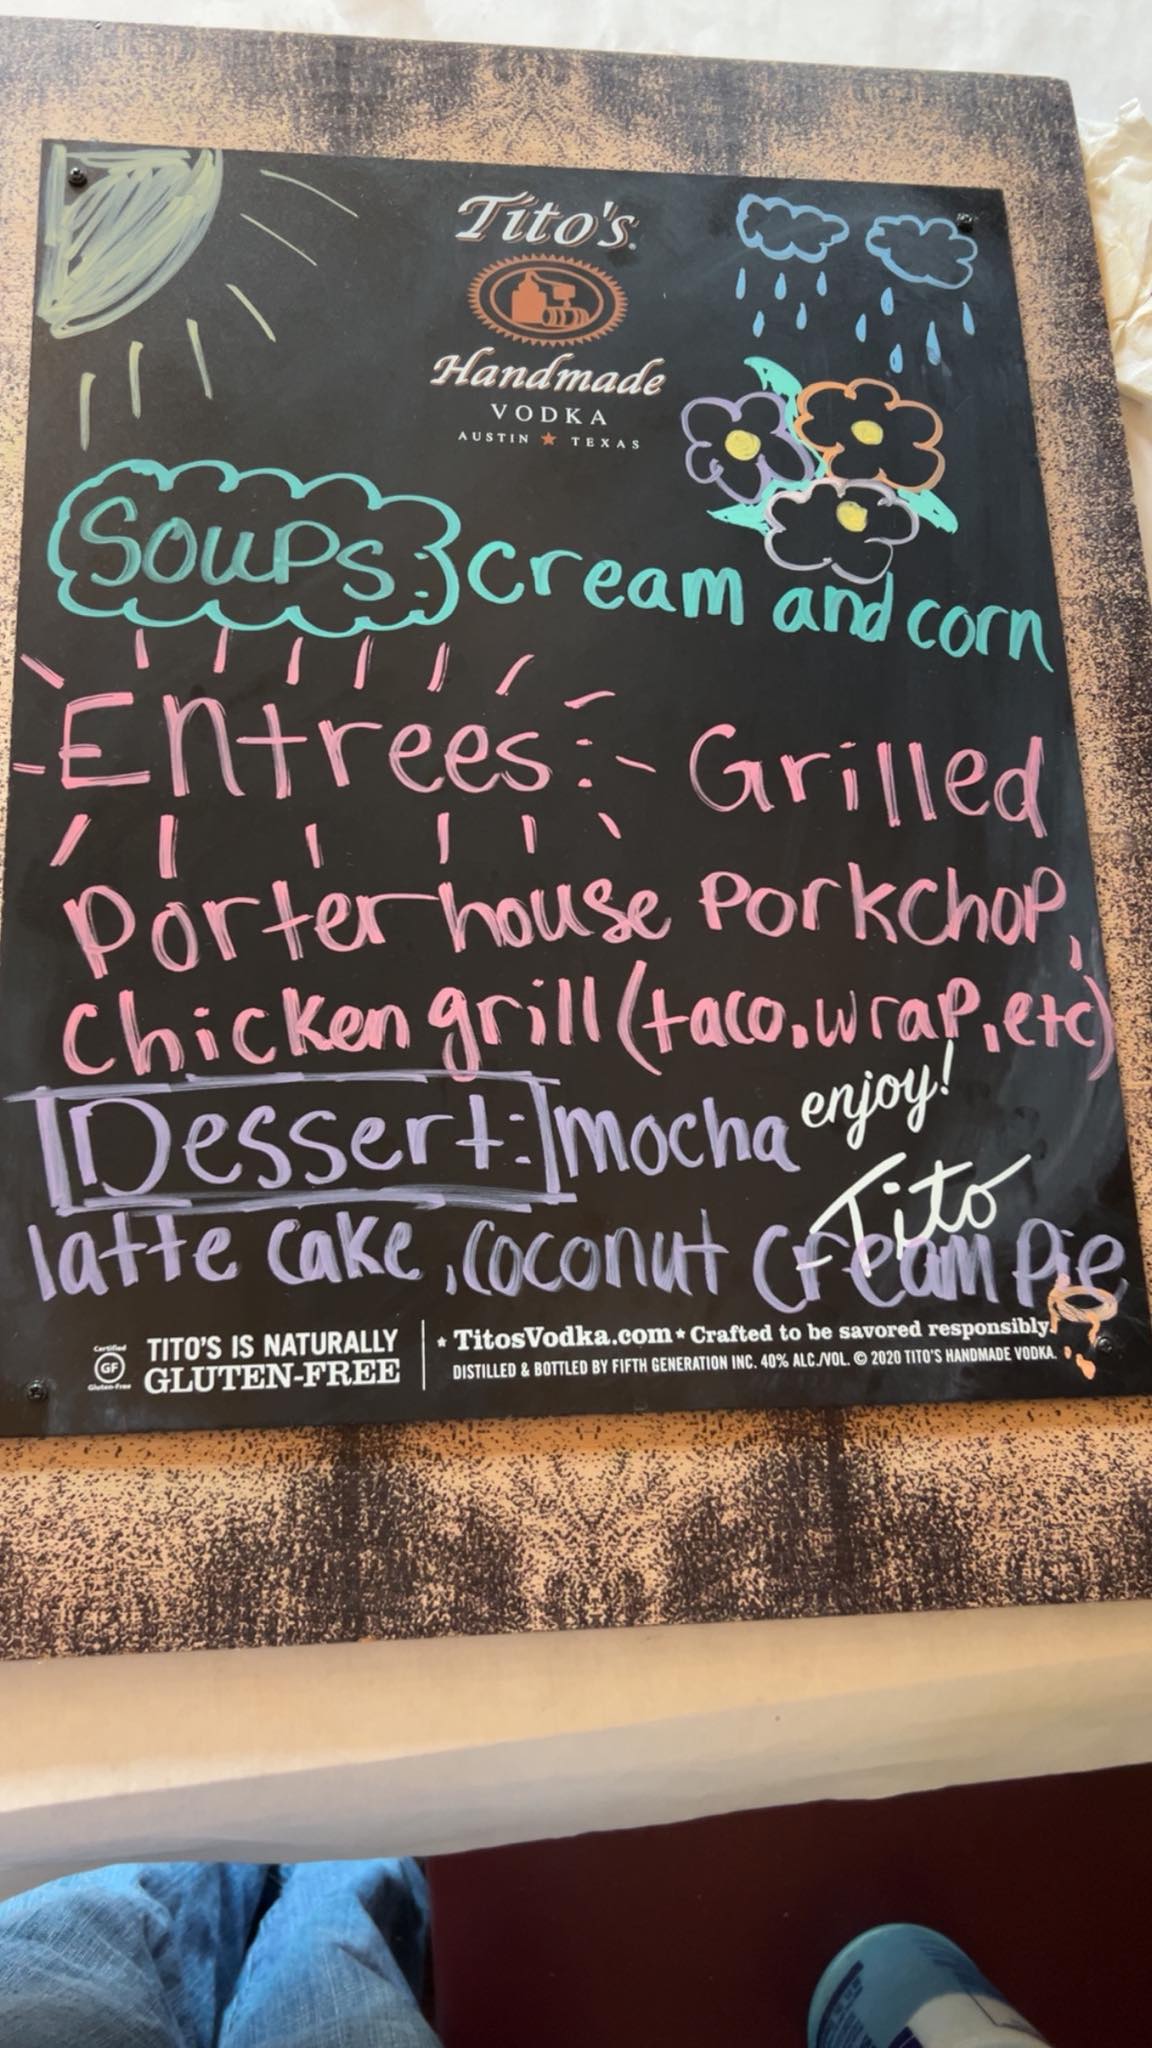 Tito's
Handmade
VODKA
AUSTIN ★ TEXAS
Soups: cream and corn
Entrees: Grilled
Porterhouse Porkchop,
Chicken grill (taco, wrap, etc)
Dessert: mocha
enjoy!
Tito
latte cake, coconut cream Pie
Certified
GF
Gluten-Free
TITO'S IS NATURALLY
GLUTEN-FREE
★ TitosVodka.com ★ Crafted to be savored responsibly.
DISTILLED & BOTTLED BY FIFTH GENERATION INC. 40% ALC./VOL. © 2020 TITO'S HANDMADE VODKA.